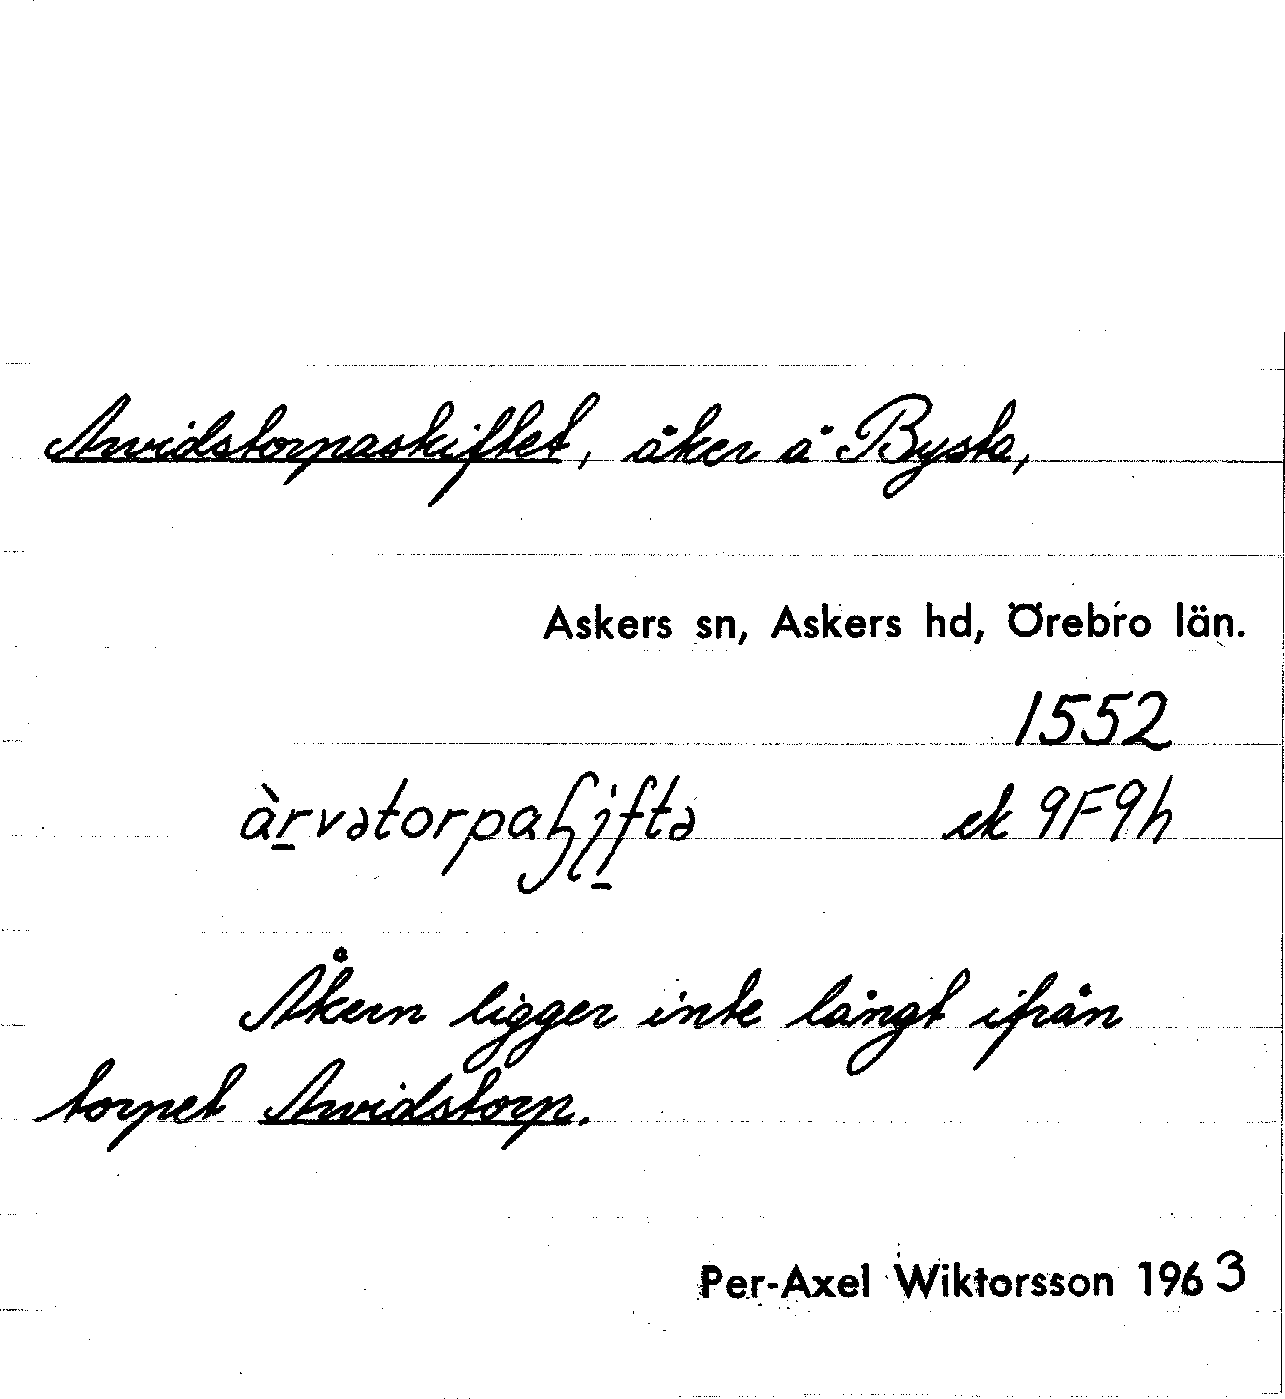 Arvidstorpaskiftet, åker å Bysta,
Askers sn, Askers hd, Örebro län.
1552
ek 9F9h
Åkern ligger inte långt ifrån
torpet Arvidstorp.
Per-Axel Wiktorsson 1963